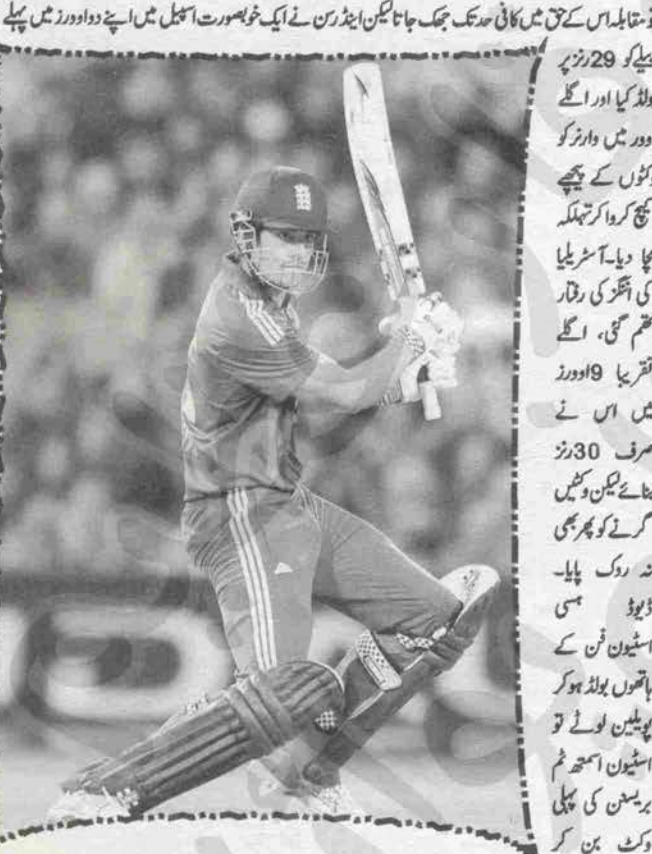 تو مقابلہ اس کے حق میں کافی حد تک جھک جاتا لیکن اینڈرسن نے ایک خوبصورت اسپیل میں اپنے دو اوورز میں پہلے
بیلے کو 29 رنز پر
بولڈ کیا اور اگلے
اوور میں وارنر کو
وکٹوں کے پیچھے
کیچ کروا کر تہلکہ
مچا دیا۔ آسٹریلیا
کی اننگز کی رفتار
تھم گئی، اگلے
تقریبا 9 اوورز
میں اس نے
صرف 30 رنز
بنائے لیکن وکٹیں
گرنے کو پھر بھی
نہ روک پایا۔
ڈیوڈ ہسی
اسٹیون فن کے
ہاتھوں بولڈ ہوکر
پویلین لوٹے تو
اسٹیون اسمتھ ٹم
بریسنن کی پہلی
وکٹ بن کر